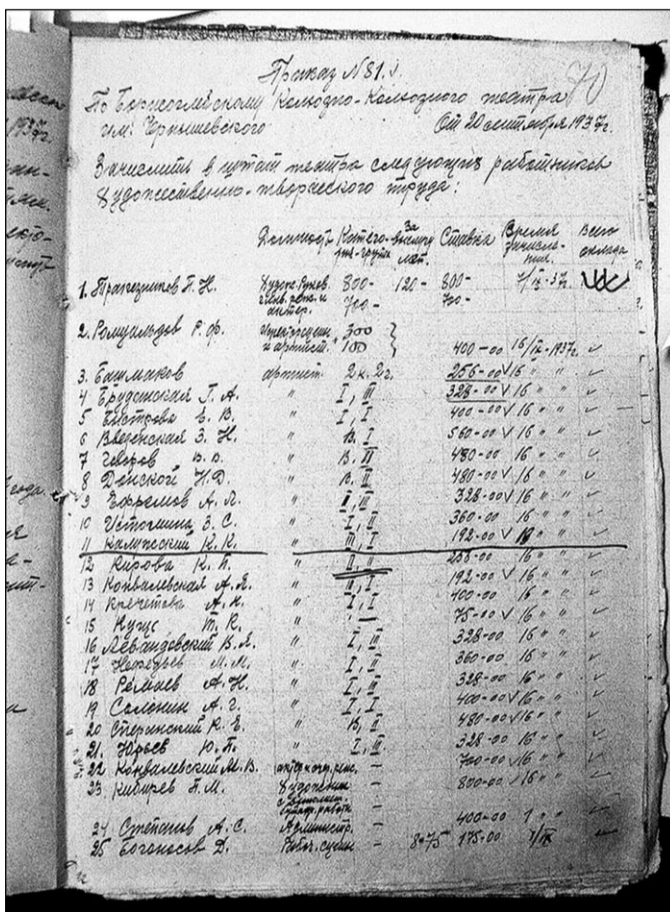 Приказ N 81.
70
По Борисоглебскому Колхозно-Совхозного театра
им: Чернышевского От 20 сентября 1937г.
Зачислить в штат театра следующих работников
художественно-творческого труда:
Должност. Катего-рия-группа За выслугу лет. Ставка Время зачисле-ния. Всего оклада
1. Трапезников П. Н. Худож. Руков. 800- 120- 800- 7/IX-37
главн. реж. и актер. 700- 700-
2. Ромуальдов Р. Ф. 300
и артист. 100 400-00 16/IX-1937г.
3. Башмаков артист 2 к. 2г. 256-00 16 " "
4 Брудинская Г. А. " I, III 328-00 16 " "
5 Быстрова Е. В. " I, I 400-00 16 " "
6 Введенская З. Н. " В, I 560-00 16 " "
7 В. В. " В, II 480-00 16 " "
8 Донской Н. Д. " В, II 480-00 16 " "
9 Ефремов А. Л. " II, III 328-00 16 " "
10 Истомина З. С. " I, II 360-00 16 " "
11 Калужский К. К. " III, I 192-00 "
12 Кирова К. П. " II, II 256-00 16 " "
13 Конвалевская А. Я. " I 192-00 16 " "
14 Кречетова А. К. " I, I 400-00 16 " "
15 Кущ М. К. " — 75-00 16 " "
16 Левандовский В. Я. " I, III 328-00 16 " "
17 Нефедьев М. М. " I, II 360-00 16 " "
18 А. Н. " I, III 328-00 16 " "
19 Салонин А. Г. " I, I 400-00 16 " "
20 Сперинский К. Е. " В, II 480-00 16 " "
21. Юрьев Ю. П. " I, III 328-00 16 " "
22. Конвалевский М. В. реж. — 700-00 16 " "
23. Кибирев П. М. Художник — 800-00 16 " "
24. Степанов А. С. Администр. — 400-00 1 " "
25 Богоносов Д. Рабоч. сцены — 8-75 175-00 1/IX